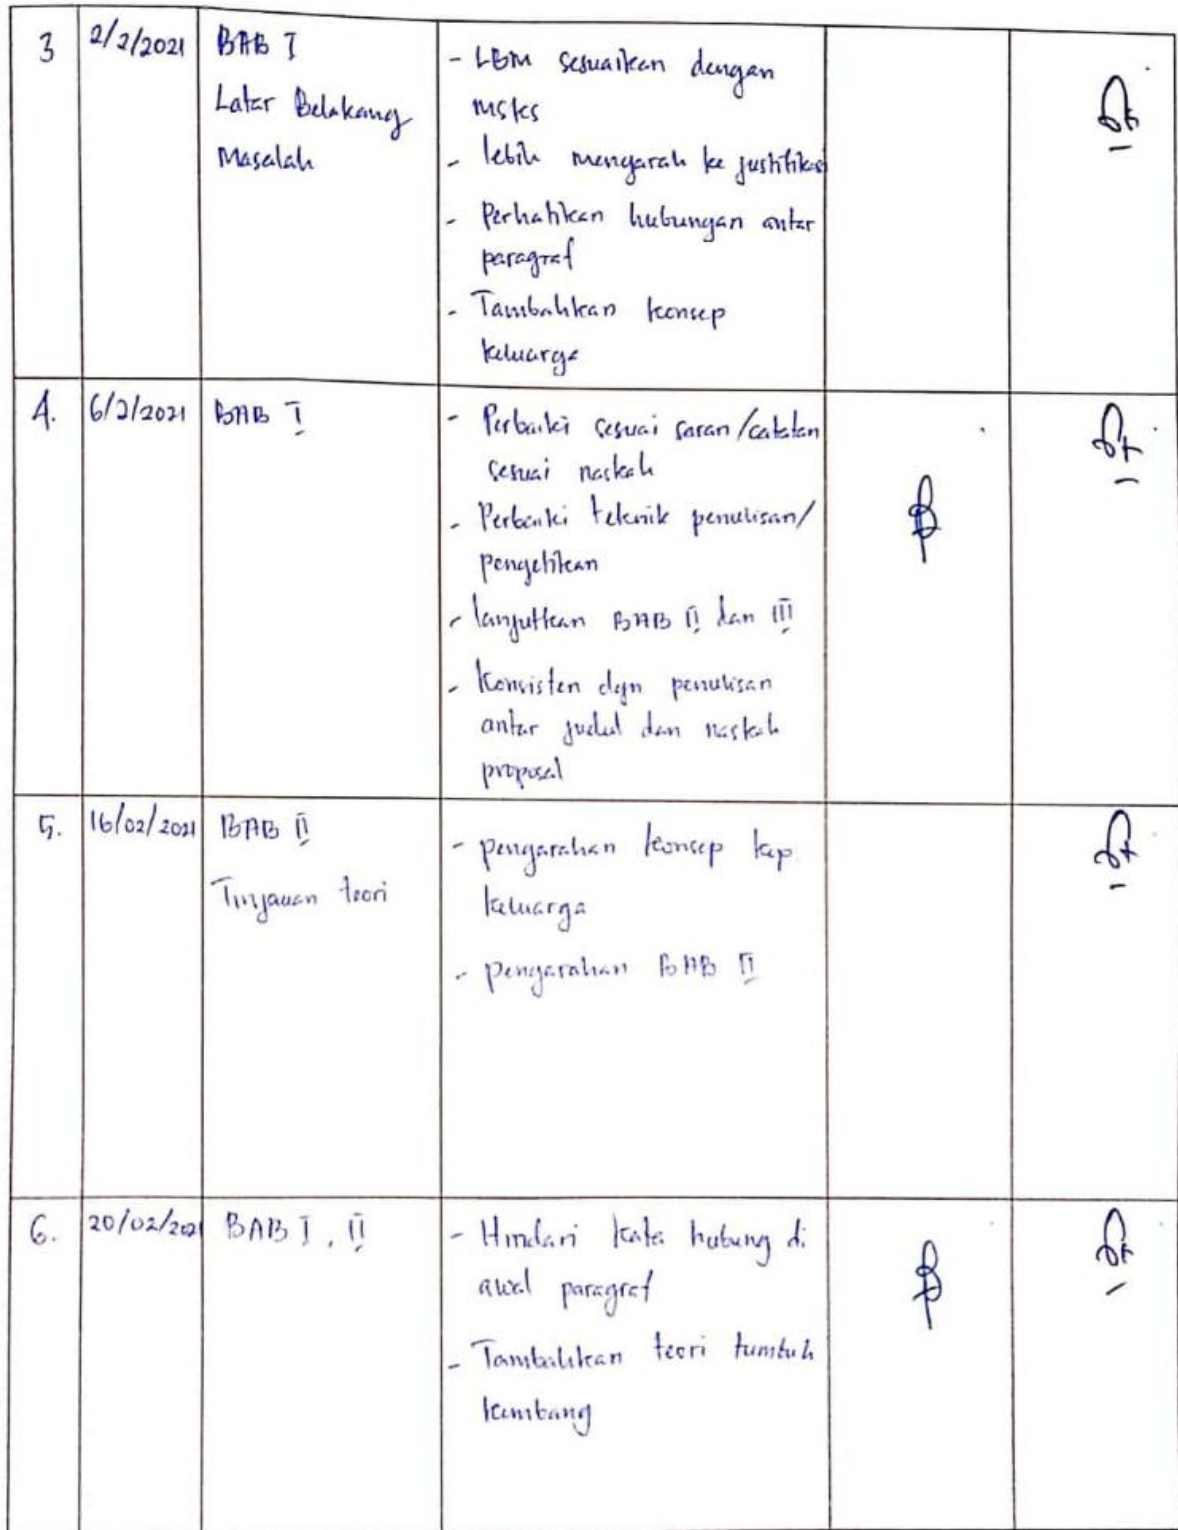 3
2/2/2021
BAB I
Latar Belakang
Masalah
- LBM sesuaikan dengan
msks
- lebih mengarah ke justifikasi
- Perhatikan hubungan antar
paragraf
- Tambahkan konsep
keluarga
4.
6/2/2021
BAB I
- Perbaiki sesuai saran/catatan
sesuai naskah
- Perbaiki teknik penulisan/
pengetikan
- lanjutkan BAB II dan III
- Konsisten dgn penulisan
antar judul dan naskah
proposal
5.
16/02/2021
BAB II
Tinjauan teori
- pengarahan konsep kep.
keluarga
- pengarahan BAB II
6.
20/02/2021
BAB I, II
- Hindari kata hubung di
awal paragraf
- Tambahkan teori tumbuh
kembang